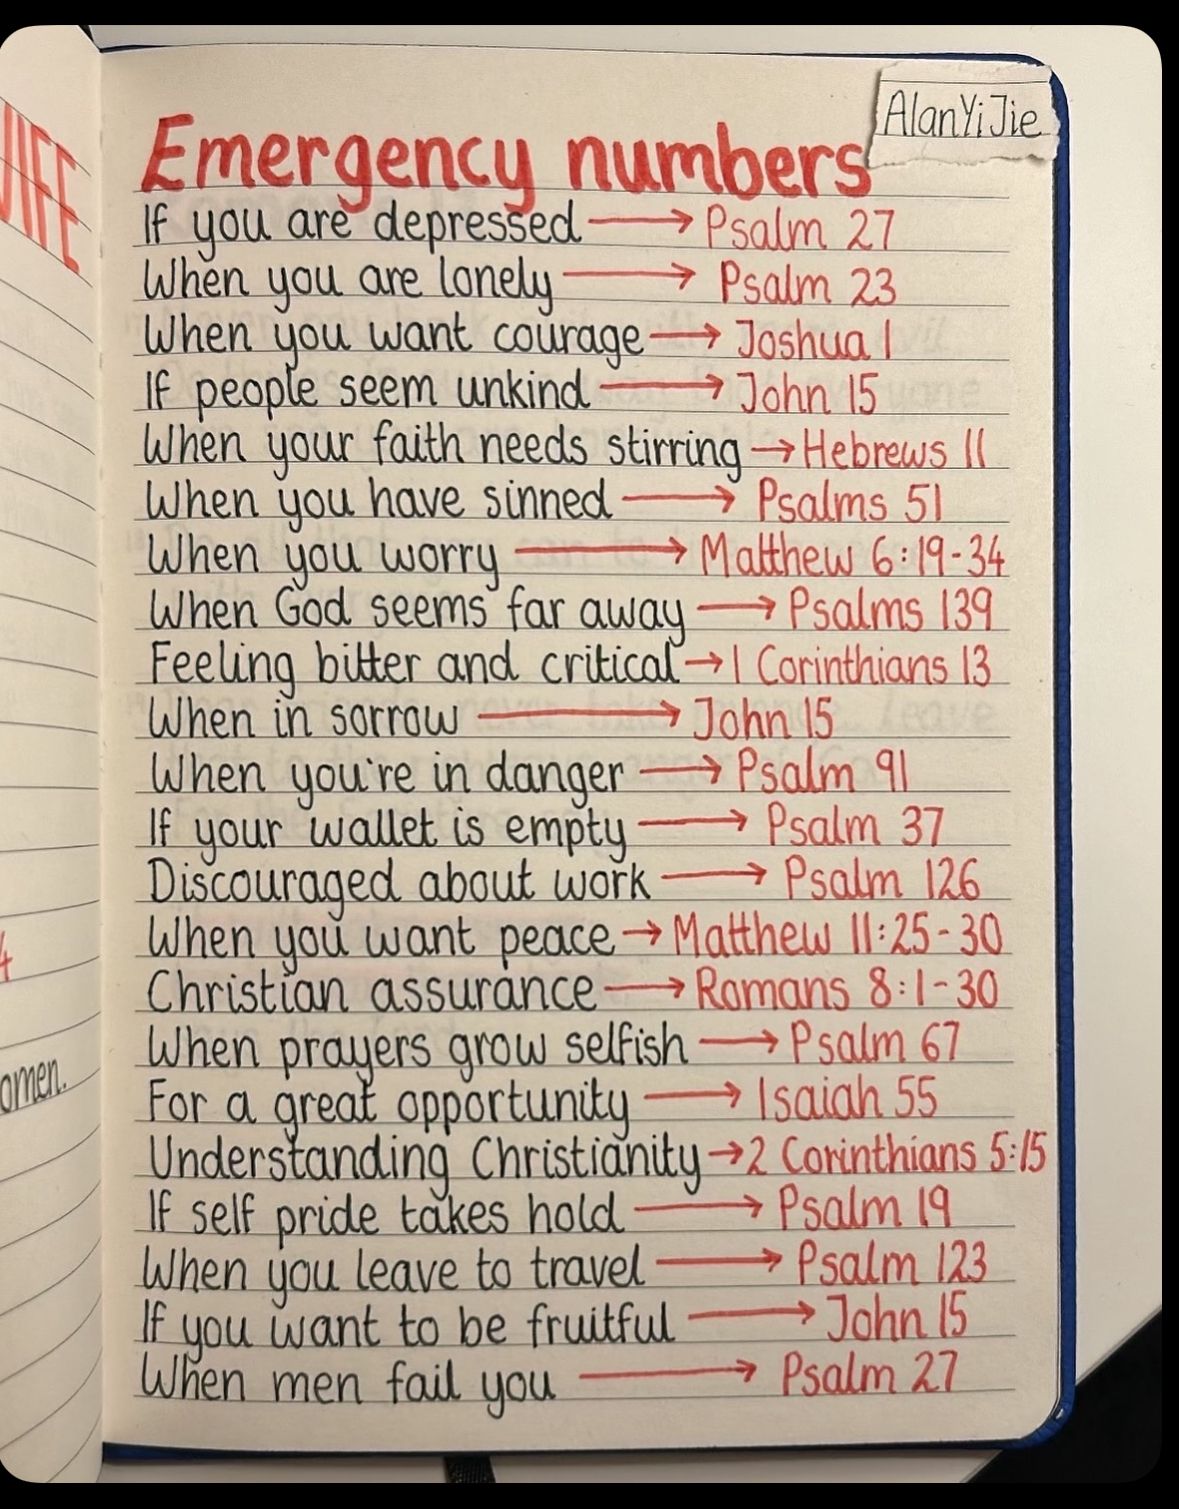 AlanYiJie
Emergency numbers
If you are depressed → Psalm 27
When you are lonely → Psalm 23
When you want courage → Joshua 1
If people seem unkind → John 15
When your faith needs stirring → Hebrews 11
When you have sinned → Psalms 51
When you worry → Matthew 6:19-34
When God seems far away → Psalms 139
Feeling bitter and critical → 1 Corinthians 13
When in sorrow → John 15
When you're in danger → Psalm 91
If your wallet is empty → Psalm 37
Discouraged about work → Psalm 126
When you want peace → Matthew 11:25-30
Christian assurance → Romans 8:1-30
When prayers grow selfish → Psalm 67
For a great opportunity → Isaiah 55
Understanding Christianity → 2 Corinthians 5:15
If self pride takes hold → Psalm 19
When you leave to travel → Psalm 123
If you want to be fruitful → John 15
When men fail you → Psalm 27